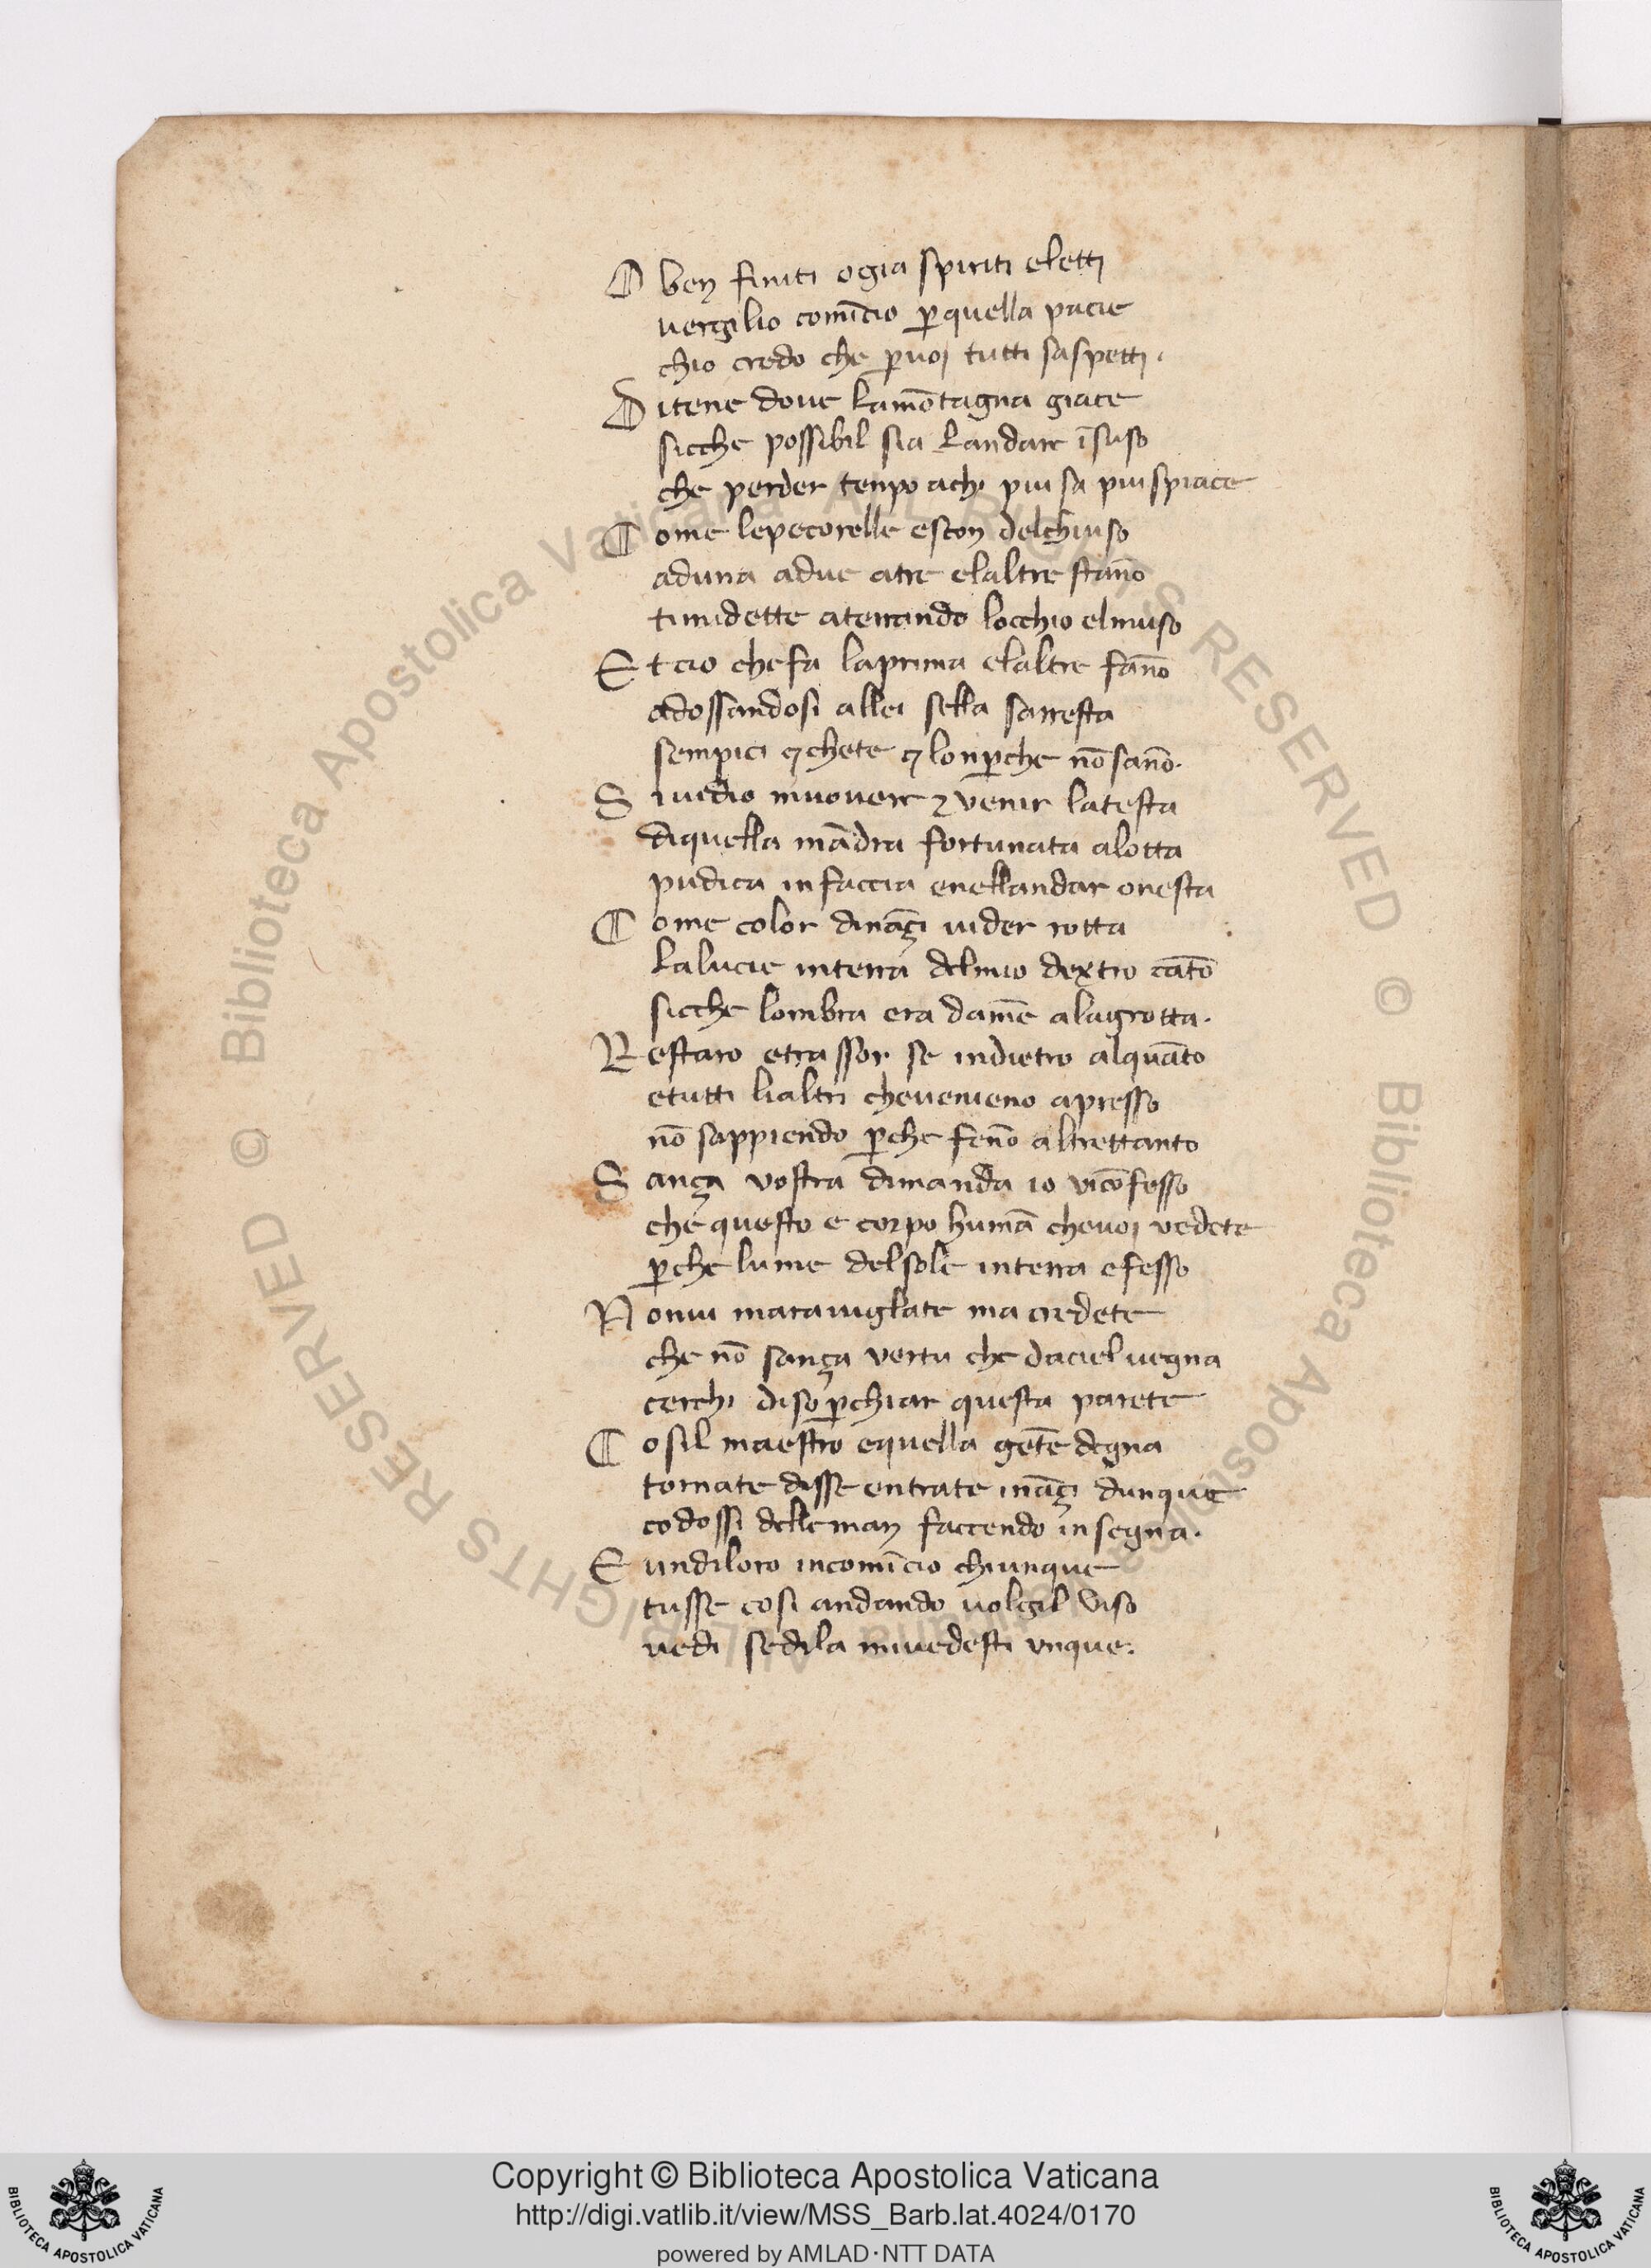 O ben finiti ogia spiriti eletti
uergilio comīcio p̄ quella pacie
chio credo che p̄ uoi tutti saspetti.
Ditene doue lamōtagna giace
sicche possibil sia landare īsuso
che perder tenpo achi piu sa piu spiace
Come lepecorelle escon delchiuso
aduna adue atre elaltre stāno
timidette aterrando locchio elmuso
Et cio chefa laprima elaltre fāno
adossandosi allei sella sarresta
sempici ⁊ chete ⁊ lonp̄che nō sāno.
Siuedio muouere ⁊ venir latesta
diquella mādra fortunata alotta
pudica in faccia enellandar onesta
Come color dināçi uider rotta
lalucie interra delmio dextro cātō
sicche lombra era damē alagrotta.
Restaro etrassor se indietro alquāto
etutti lialtri cheuenieno apresso
nō sappiendo p̄che fēno altrettanto
Sança vostra dimanda io vicōfesso
che questo e corpo humā cheuoi vedete
p̄che lume delsole interra efesso
Nonui marauiglate ma credete
che nō sança vertu che daciel uegna
cerchi diso p̄chiar questa parete
Cosil maestro equella gētē degna
tornate disse entrate ināçi dunque
codossi delle man faccendo insegna.
E undiloro incomīcio chiunque
tusse cosi andando uolgil viso
uedi sedila miuedesti vnque:
© Biblioteca Apostolica Vaticana ALL RIGHTS RESERVED
© Biblioteca Apostolica Vaticana ALL RIGHTS RESERVED
Copyright © Biblioteca Apostolica Vaticana
http://digi.vatlib.it/view/MSS_Barb.lat.4024/0170
powered by AMLAD·NTT DATA
BIBLIOTECA APOSTOLICA VATICANA
BIBLIOTECA APOSTOLICA VATICANA